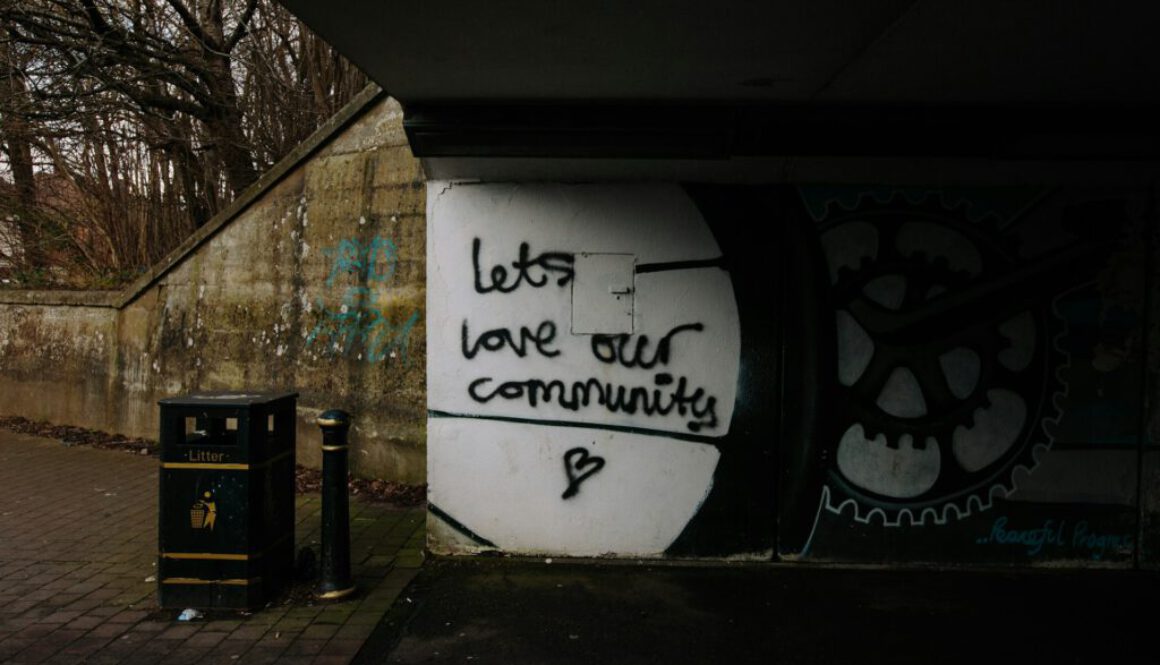 Lets
love our
communitys
-Litter-
..Peaceful